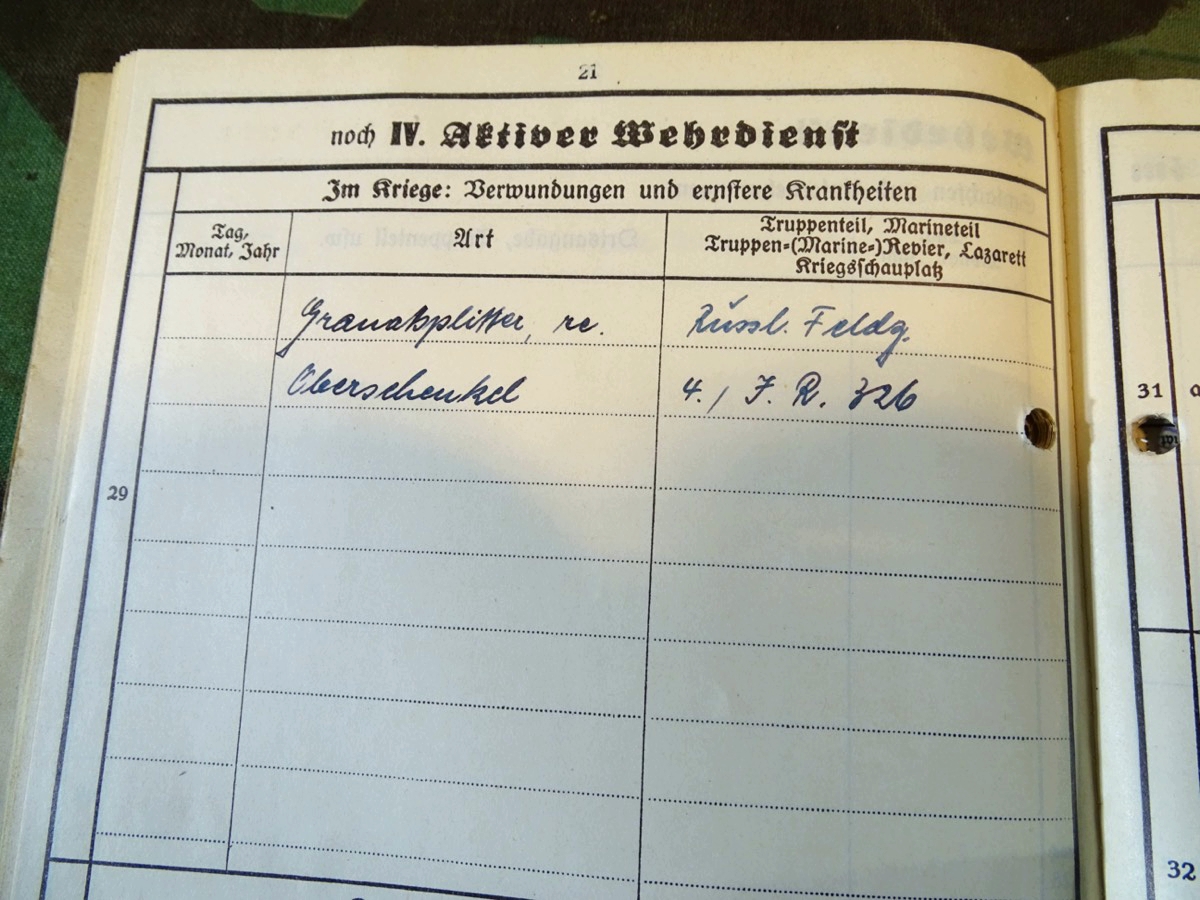 21
noch IV. Aktiver Wehrdienst
Im Kriege: Verwundungen und ernstere Krankheiten
Tag, Monat, Jahr
Art
Truppenteil, Marineteil
Truppen-(Marine-)Revier, Lazarett
Kriegsschauplatz
Granatsplitter, re.
Russl. Feldg.
Oberschenkel
4./ J. R. 326
29
31
a
32